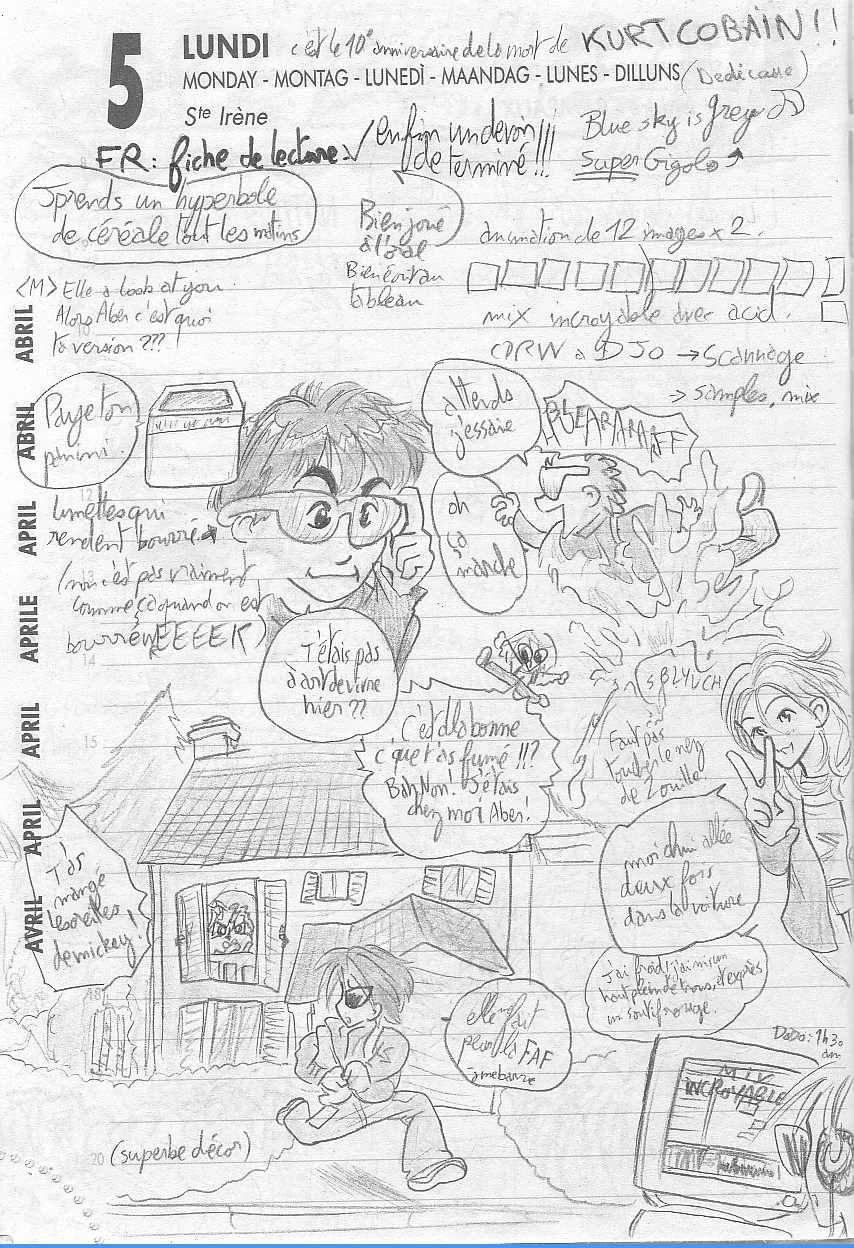 5
LUNDI c'est le 10e anniversaire de la mort de KURT COBAIN!!
MONDAY - MONTAG - LUNEDÌ - MAANDAG - LUNES - DILLUNS (Dédicasse)
Ste Irène
FR: fiche de lecture ✓
enfin un devoir
de terminé!!!
Blue sky is grey
Super Gigolo
J'prends un hyperbole
de céréale tout les matins
Bien joué
à l'oral
Bien écrit au
tableau
animation de 12 images x 2.
mix incroyable avec acid.
CDRW à DJO → Scannage
→ samples, mix
<M> Elle a look at you
Alors Aber c'est quoi
ta version ???
Paye ton
panini.
attends
j'essaie
oh
ça
marche
lunettes qui
rendent bourré
(non c'est pas vraiment
comme ça quand on est
bourré EEEEK)
T'étais pas
hier ??
SBLYUCH
Faut pas
toucher le nez
de Zouille
C'est d'la bonne
c'que t'as fumé !!?
Bah Non! J'étais
chez moi Aber!
T'as
mangé
les oreilles
de mickey!
moi chui allée
deux fois
dans la voiture
J'ai froid, j'ai mis un
haut plein de trous, et exprès
un soutif rouge.
elle m'fait
peur la FAF
j'me barre
DoDo: 1h30
am
INCROYABLE
(superbe décor)
ABRIL
ABRIL
APRIL
APRILE
APRIL
APRIL
AVRIL
12
14
15
18
20